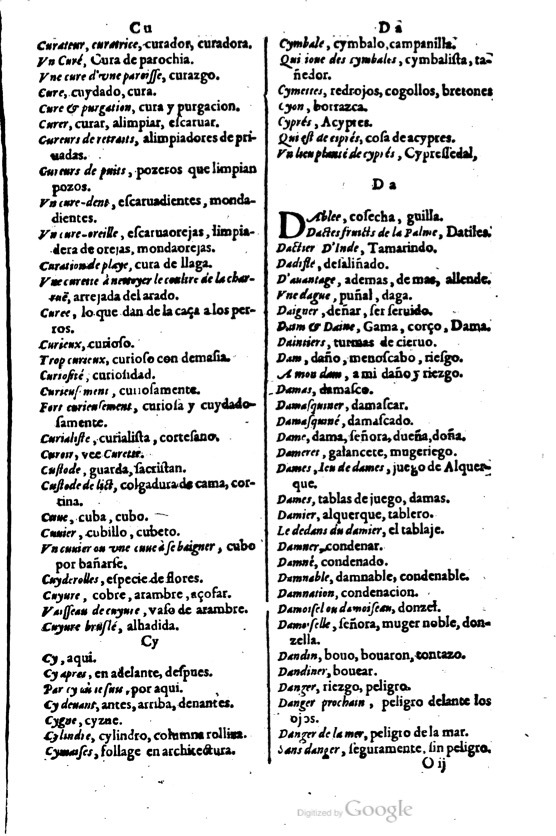 Cu
Curateur, curatrice, curador, curadora.
Vn Curé, Cura de parochia.
Vne cure d'vne paroisse, curazgo.
Cure, cuydado, cura.
Cure & purgation, cura y purgacion.
Curer, curar, alimpiar, escaruar.
Cureurs de retraits, alimpiadores de pri-
uadas.
Cureurs de puits, pozeros que limpian
pozos.
Vn cure-dent, escaruadientes, monda-
dientes.
Vn cure-oreille, escaruaorejas, limpia-
dera de orejas, mondaorejas.
Curation de playe, cura de llaga.
Vne curette à nettoyer le coultre de la char-
ruë, arrejada del arado.
Curee, lo que dan de la caça a los per-
ros.
Curieux, curioso.
Trop curieux, curioso con demasia.
Curiosité, curiosidad.
Curieusement, curiosamente.
Fort curieusement, curiosa y cuydado-
samente.
Curialiste, curialista, cortesano.
Curoir, vee Curette.
Custode, guarda, sacristan.
Custode de lict, colgadura de cama, cor-
tina.
Cuue, cuba, cubo.
Cuuier, cubillo, cubeto.
Vn cuuier ou vne cuue à se baigner, cubo
por bañarse.
Cuyderolles, especie de flores.
Cuyure, cobre, arambre, açofar.
Vaisseau de cuyure, vaso de arambre.
Cuyure bruslé, alhadida.
Cy
Cy, aqui.
Cy apres, en adelante, despues.
Par cy, por aqui.
Cy deuant, antes, arriba, denantes.
Cygne, cyzne.
Cylindre, cylindro, columna rolliza.
Cymaises, follage en architectura.
Da
Cymbale, cymbalo, campanilla.
Qui ioue des cymbales, cymbalista, ta-
ñedor.
Cymettes, redrojos, cogollos, bretones
Cyon, borrazca.
Cyprés, Acypres.
Qui est de ciprés, cosa de acypres.
Vn lieu planté de cyprés, Cypressedal,
Da
DAblee, cosecha, guilla.
Dactes fruicts de la Palme, Datiles.
Dactier D'Inde, Tamarindo.
Dadiste, desaliñado.
D'auantage, ademas, de mas, allende.
Vne dague, puñal, daga.
Daiguer, deñar, ser seruido.
Dam & Daine, Gama, corço, Dama.
Daintiers, turmas de cieruo.
Dam, daño, menoscabo, riesgo.
A mon dam, a mi daño y riezgo.
Damas, damasco.
Damasquiner, damascar.
Damasquiné, damascado.
Dame, dama, señora, dueña, doña.
Dameret, galancete, mugeriego.
Dames, Ieu de dames, juego de Alquer-
que.
Dames, tablas de juego, damas.
Damier, alquerque, tablero.
Le dedans du damier, el tablaje.
Damner, condenar.
Damné, condenado.
Damnable, damnable, condenable.
Damnation, condenacion.
Damoisel ou damoiseau, donzel.
Damoiselle, señora, muger noble, don-
zella.
Dandin, bouo, bouaron, tontazo.
Dandiner, bouear.
Danger, riezgo, peligro.
Danger prochain, peligro delante los
ojos.
Danger de la mer, peligro de la mar.
Sans danger, seguramente, sin peligro.
O ij
Digitized by Google